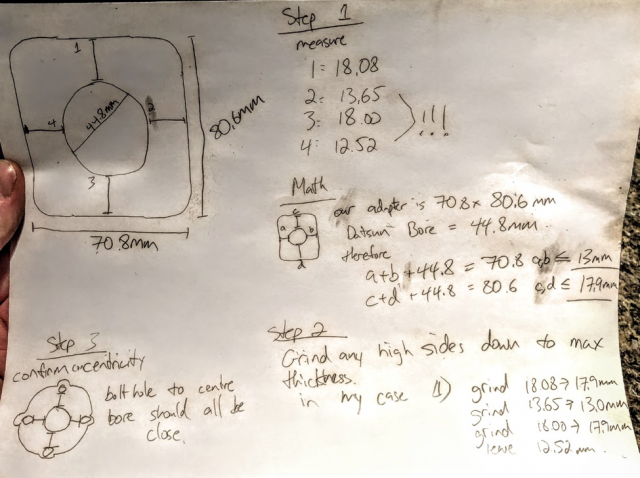 Step 1
measure
1 = 18.08
2 = 13.65
3 = 18.00
4 = 12.52
!!!
1
2
3
4
44.8mm
80.6mm
70.8mm
Math
our adapter is 70.8 x 80.6 mm
Datsun Bore = 44.8mm
therefore
a+b+44.8 = 70.8 a,b ≤ 13mm
c+d+44.8 = 80.6 c,d ≤ 17.9mm
c
a
b
d
Step 2
Grind any high sides down to max
thickness.
in my case 1) grind 18.08 → 17.9mm
grind 13.65 → 13.0mm
grind 18.00 → 17.9mm
leave 12.52mm.
Step 3
confirm concentricity
bolt hole to centre
bore should all be
close.